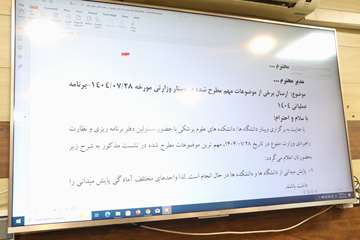 محترم ...
مدیر محترم ...
موضوع: ارسال برخی از موضوعات مهم مطرح شده در وبینار وزارتی مورخه ۱۴۰۴/۰۷/۲۸ -برنامه
عملیاتی ۱۴۰۴
با سلام و احترام؛
با عنایت به برگزاری وبینار دانشگاه/ دانشکده های علوم پزشکی با حضور مسئولین دفتر برنامه ریزی و نظارت
راهبردی وزارت متبوع در تاریخ ۱۴۰۴/۰۷/۲۸، مهم ترین موضوعات مطرح شده در نشست مذکور به شرح زیر
بحضورتان اعلام می‌گردد:
۱. پایش میدانی از دانشگاه ها و دانشکده ها در حال انجام است. لذا واحدهای مختلف آمادگی پایش میدانی را
داشته باشند.